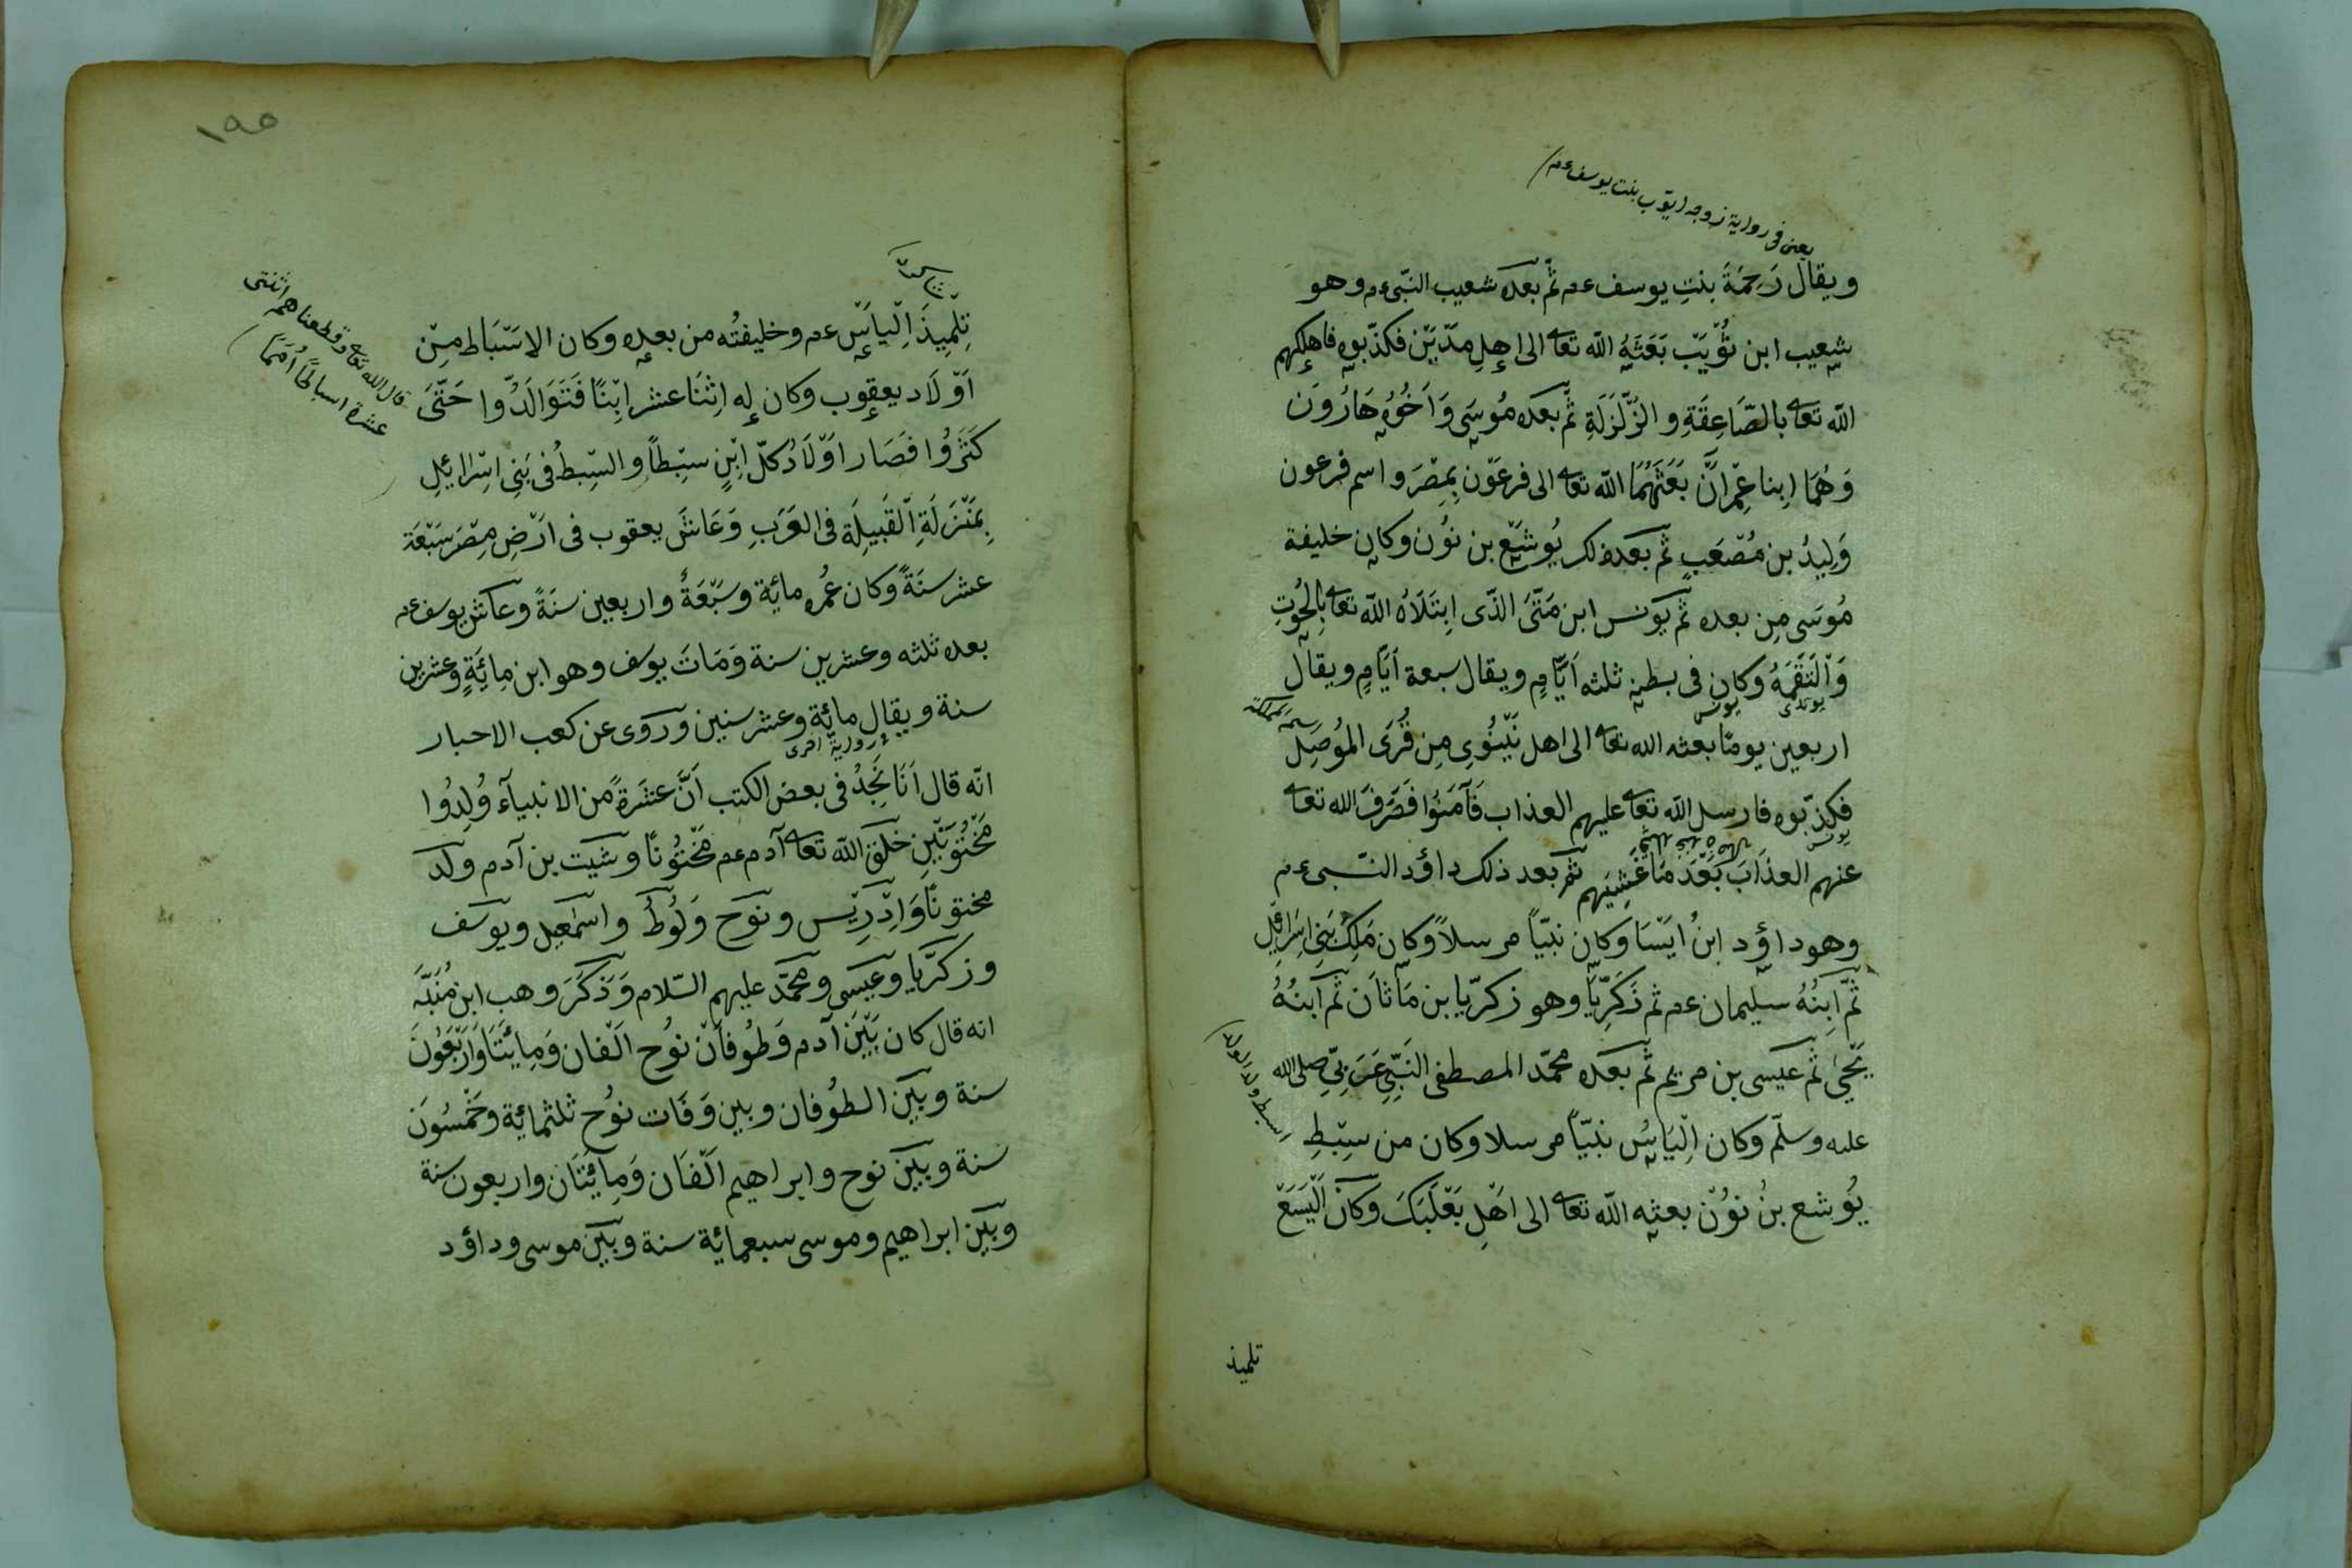 يعنى فى رواية زوجه ايوب بنت يوسف عم
ويقال رَحِمَةَ بنتِ يوسف عم ثمّ بعده شعيب النّبى عم وهو
شعيب ابن ثُوَيَبْ بَعَثَهُ الله تعا الى اهلِ مَدْيَنْ فكذّبوه فاهلكهم
الله تعا بالصّاعِقَةِ والزّلْزَلَةِ ثمّ بعده مُوسَى وَاَخُوُهُ هَارُوَنَ
وَهُمَا ابنا عِمْرَانَ بَعَثَهُمَا الله تعا الى فرعَوْن بِمِصْرَ واسم فرعون
وَلِيدُ بن مُصْعَبٍ ثمّ بعد ذلك يُوشَعْ بن نوُن وكان خليفة
مُوسَى مِن بعده ثمّ يَونس ابن مَتَّىَ الذّى اِبتَلَاهُ الله تعا بِالحُوُتِ
وَالْتَقَمَهُ وكان فى بطنِهِ ثلثه اَيّامٍ ويقال سبعة اَيّامٍ ويقال
يونس
اربعين يومًا بعثه الله تعا الى اهل نَيْنُوِى مِن قُرَى المُوُصِلِ
فكذّبوه فارسل الله تعا عليهم العذاب فَآمَنُوُا فَصَرَفَ الله تعا
يونس
عنهم العذَابَ بَعْدَ مَا غَشِيَهم ثمّ بعد ذلك داؤد النّبى عم
وهو داؤد ابنُ ايَسَا وكان نبيّاً مرسلاً وكان مَلِكُ بَنِى اِسْرَائِيْلَ
ثمّ اِبنُهُ سليمان عم ثم زَكَرِيَّا وهو زكريّا بن مَاثاَن ثم اَبنُهُ
يَحْيٰى ثمّ عيَسى بن مريم ثمّ بعده محمّد المصطفى النَبِىِّ عَرَبِىِّ صلى الله
عليه وسلّم وكان اِلْيَاسُ نبيّاً مرسلا وكان من سِبْطِ
السبط ولد الولد
يُوشع بنُ نوُن بعثه الله تعا الى اَهْلِ بَعْلَبَكَ وَكاَنَ اَلْيَسَعْ
تلميذ
١٩٥
تِلْمِيِذَ اِلْياَسْ عم وخليفتُه من بعدِه وكان الاسْبَاط مِنْ
قال الله تعا وقطعناهم اثنتى
عشرة اسباطًا اُمَمًا
اَوْلَاد يعقوب وكان له اِثنَا عشر اِبنًا فَتَوَالَدُوا حَتّىَ
كَثَرُوُا فَصَار اوْلَادُ كلّ اِبنٍ سِبْطاً والسِّبطُ فى بَنِى اسِْرائيِلِ
بِمَنْزَلَةِ اَلْقَبِيلَةِ فى العَرَبِ وَعَاشَ يعقوب فى ارَضِ مِصْرَ سَبْعَةَ
عشر سنَةً وكان عُمُره مائة وسَبْعَةٌ واربعين سنَةً وعاَش يوسف عم
بعده ثلثه وعشرين سنة وَمَاتَ يوسف وهو ابن مِائَةٍ وعشرين
سنة ويقال مائة وعشر سنين ورَوَى عن كعب الاحبار
رواية اخرى
انّه قال اَنَا نَجِدُ فى بعض الكتب اَنَّ عَشَرَةً من الانبيآء وُلِدُوا
مَخْتُوُنَيْنِ خَلَقَ الله تعا آدم عم مَخْتُوُنًا وشيَت بن آدم ولَد
مختونًا وَاِدْرِيْس ونوَح وَلُوُطُ واسمٰعيل ويوسَف
وزكَرّيا وعَيَسى ومحَمّد عليهم السّلام وَذَكَرَ وهب ابن مُنَبّهَ
انه قال كان بَيْنَ آدم وَطُوُفاَنْ نوُح اَلْفان وَمِائَتَا وَارَْبَعُوُنَ
سنة وبيَن الطوُفان وبين وَفَات نوُح ثلثمائة وخَمْسُوَنَ
سنة وبيَن نوح وابراهيم اَلْفَان وَمِائَتَان واربعون سنة
وبيَن ابراهيم وموسى سبعمائة سنة وبيَن موسى وداؤد